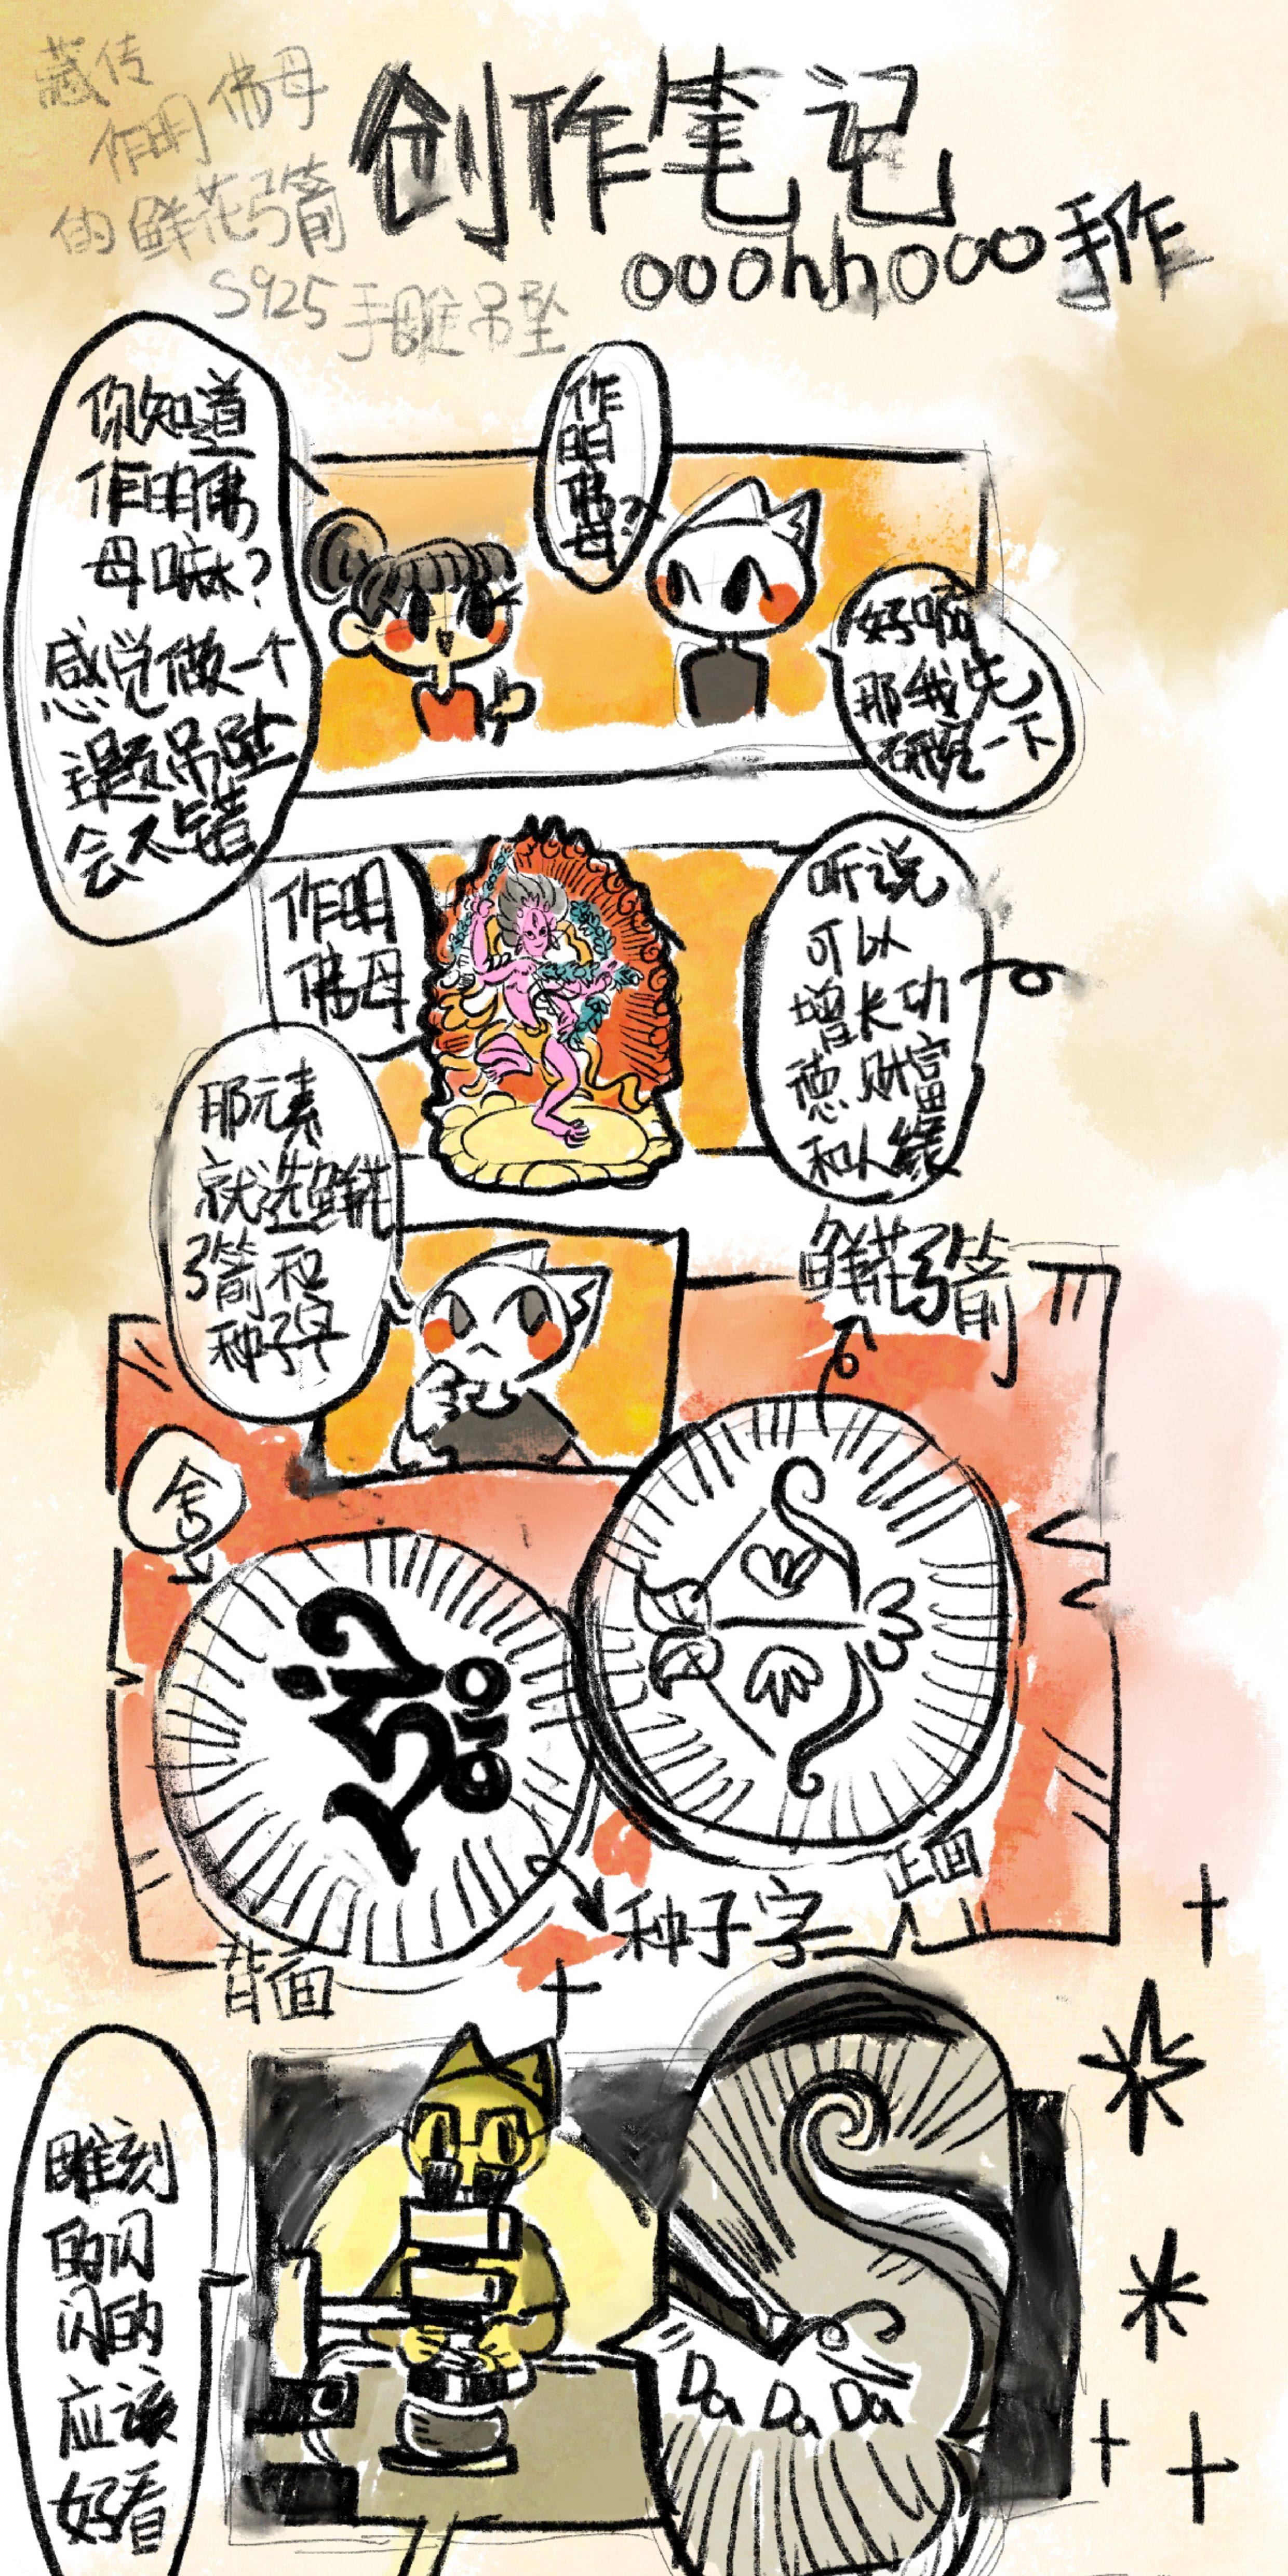 藏传
作明佛母
的鲜花弓箭
S925手雕吊坠
创作笔记
ooohhooo手作
你知道
作明佛
母嘛?
感觉做一个
主题吊坠
会不错
作
明
佛
母?
好啊
那我先
研究一下
作明
佛母
听说
可以
增长功
德财富
和人缘
那元素
就选鲜花
弓箭和
种子字
鲜花弓箭
正面
种子字
背面
雕刻
的闪
闪的
应该
好看
Da Da Da